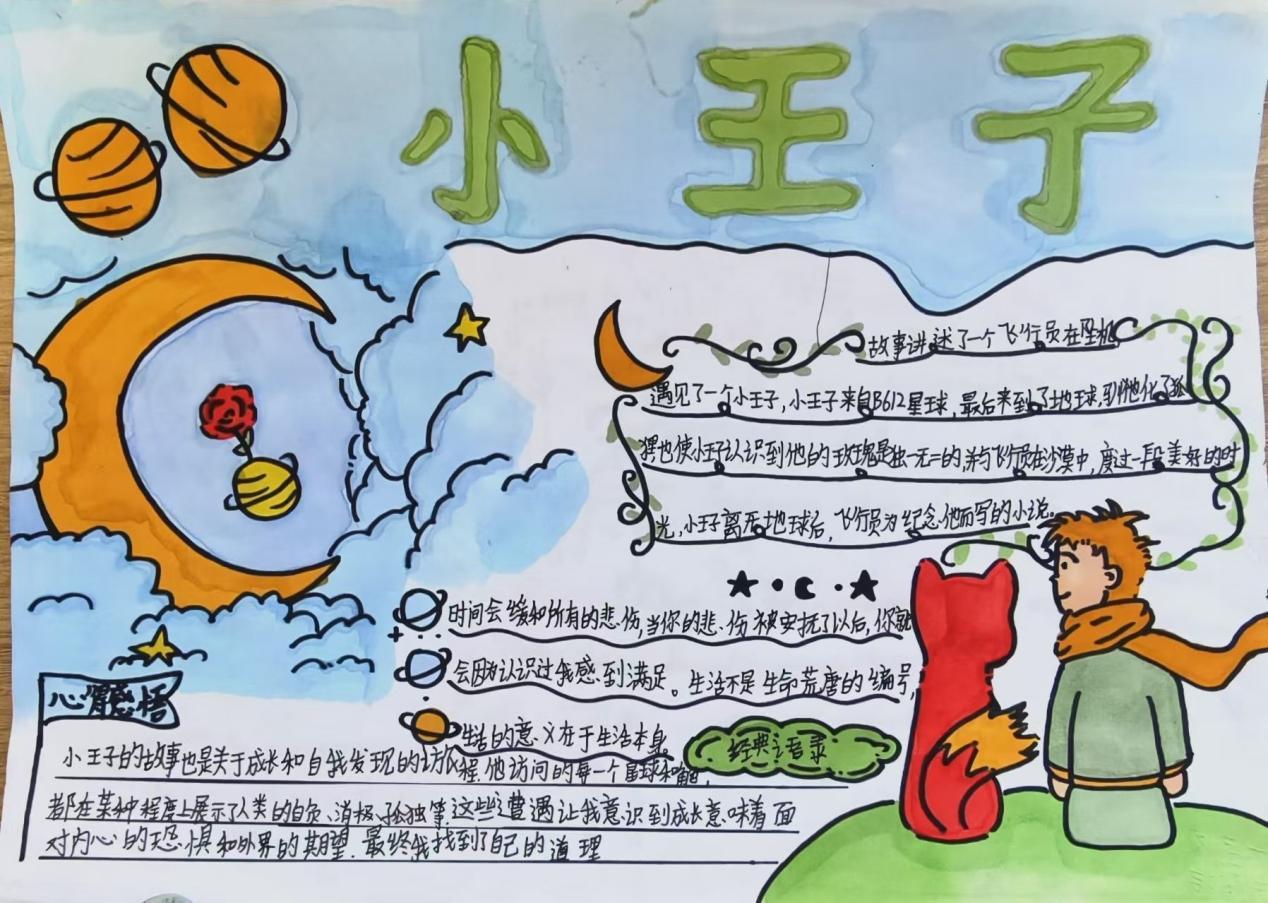 小王子
故事讲述了一个飞行员在坠机
遇见了一个小王子,小王子来自B612星球,最后来到了地球,到他化了狐
狸也使小王子认识到他的玫瑰是独一无二的,并与飞行员在沙漠中,度过一段美好的时
光,小王子离开地球后,飞行员为纪念他而写的小说。
时间会缓和所有的悲伤,当你的悲伤被安抚了以后,你就
会因为认识过我感到满足。生活不是生命荒唐的编号,
生活的意义在于生活本身。
经典语录
心得感悟
小王子的故事也是关于成长和自我发现的访旅程,他访问的每一个星球和
都在某种程度上展示了人类的自负、消极、孤独等.这些遭遇让我意识到成长意味着面
对内心的恐惧和外界的期望.最终我找到了自己的道理